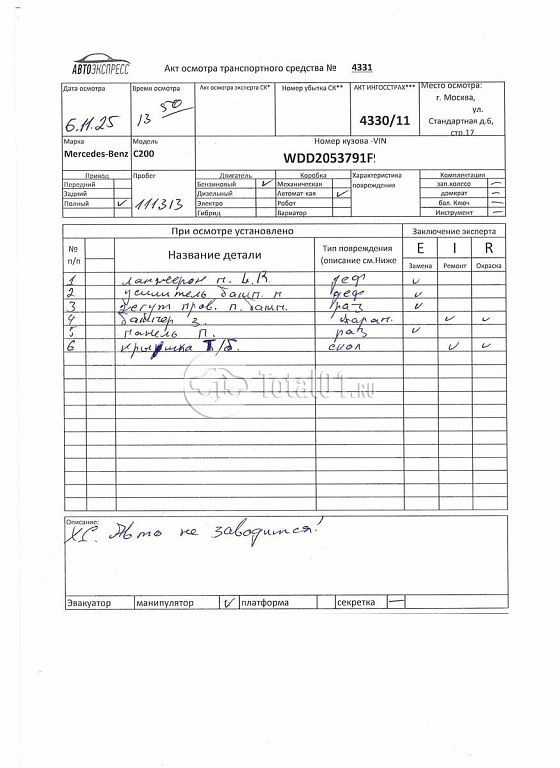 АВТОЭКСПРЕСС
Акт осмотра транспортного средства № 4331
Дата осмотра Время осмотра Акт осмотра эксперта СК* Номер убытка СК** АКТ ИНГОССТРАХ*** Место осмотра:
6.11.25 13 50 4330/11 г. Москва,
ул.
Стандартная д.6,
стр.17
Марка Модель Номер кузова -VIN
Mercedes-Benz C200 WDD2053791F
Привод Пробег Двигатель Коробка Характеристика повреждения Комплектация
Передний Бензиновый ✓ Механическая зап.колесо —
Задний Дизельный Автомат-кая ✓ домкрат —
Полный ✓ 111313 Электро Робот бал. Ключ —
Гибрид Вариатор Инструмент —
При осмотре установлено Заключение эксперта
№ п/п Название детали Тип повреждения (описание см.Ниже E I R
Замена Ремонт Окраска
1 лонжерон п. деф ✓
2 усилитель бамп. п деф ✓
3 п. бамп. раз ✓
4 бампер з. ✓ ✓
5 панель п. раз ✓
6 крышка Т/Б. скол ✓ ✓
Total01.RU
Описание:
Авто не заводится!
Эвакуатор манипулятор ✓ платформа секретка —